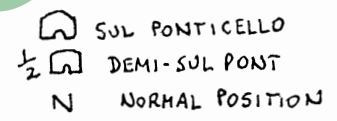 SUL PONTICELLO
1/2 DEMI-SUL PONT
N NORMAL POSITION